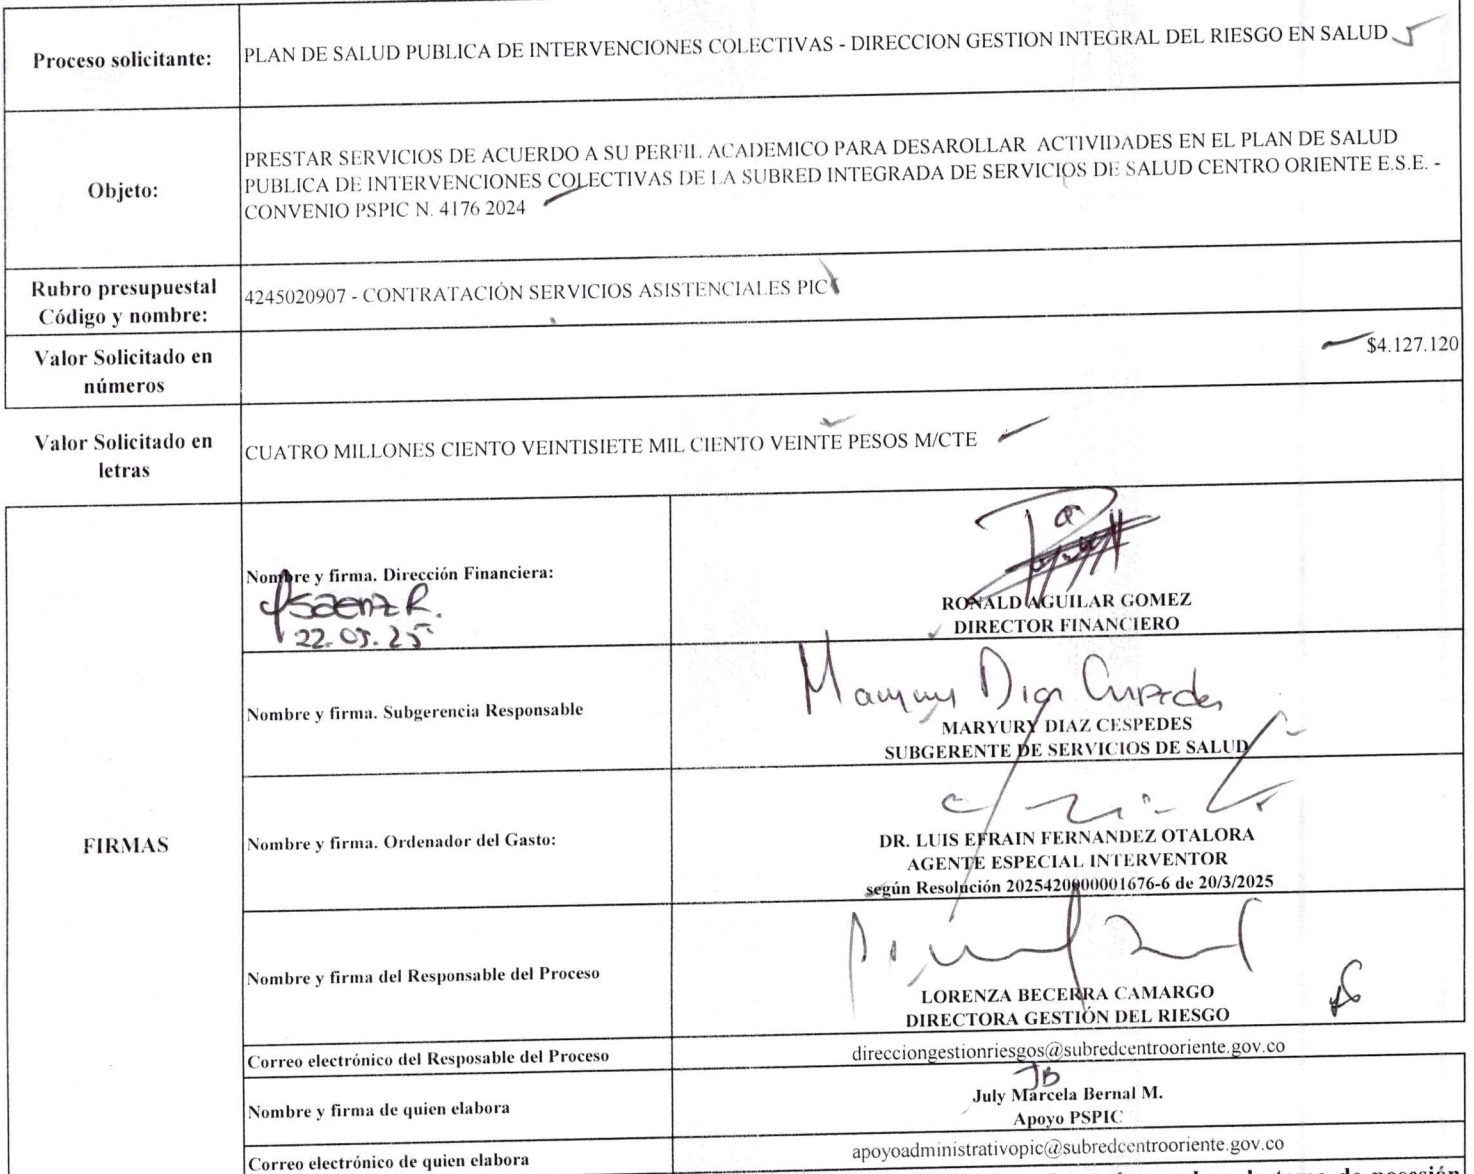 Proceso solicitante:
PLAN DE SALUD PUBLICA DE INTERVENCIONES COLECTIVAS - DIRECCION GESTION INTEGRAL DEL RIESGO EN SALUD
Objeto:
PRESTAR SERVICIOS DE ACUERDO A SU PERFIL ACADEMICO PARA DESAROLLAR ACTIVIDADES EN EL PLAN DE SALUD
PUBLICA DE INTERVENCIONES COLECTIVAS DE LA SUBRED INTEGRADA DE SERVICIOS DE SALUD CENTRO ORIENTE E.S.E. -
CONVENIO PSPIC N. 4176 2024
Rubro presupuestal
Código y nombre:
4245020907 - CONTRATACIÓN SERVICIOS ASISTENCIALES PIC
Valor Solicitado en
números
$4.127.120
Valor Solicitado en
letras
CUATRO MILLONES CIENTO VEINTISIETE MIL CIENTO VEINTE PESOS M/CTE
FIRMAS
Nombre y firma. Dirección Financiera:
Saenz R.
22.05.25
RONALD AGUILAR GOMEZ
DIRECTOR FINANCIERO
Nombre y firma. Subgerencia Responsable
Maryury Diaz Cespedes
MARYURY DIAZ CESPEDES
SUBGERENTE DE SERVICIOS DE SALUD
Nombre y firma. Ordenador del Gasto:
DR. LUIS EFRAIN FERNANDEZ OTALORA
AGENTE ESPECIAL INTERVENTOR
según Resolución 2025420000001676-6 de 20/3/2025
Nombre y firma del Responsable del Proceso
LORENZA BECERRA CAMARGO
DIRECTORA GESTIÓN DEL RIESGO
Correo electrónico del Resposable del Proceso
direcciongestionriesgos@subredcentrooriente.gov.co
Nombre y firma de quien elabora
JB
July Marcela Bernal M.
Apoyo PSPIC
Correo electrónico de quien elabora
apoyoadministrativopic@subredcentrooriente.gov.co
de posesión